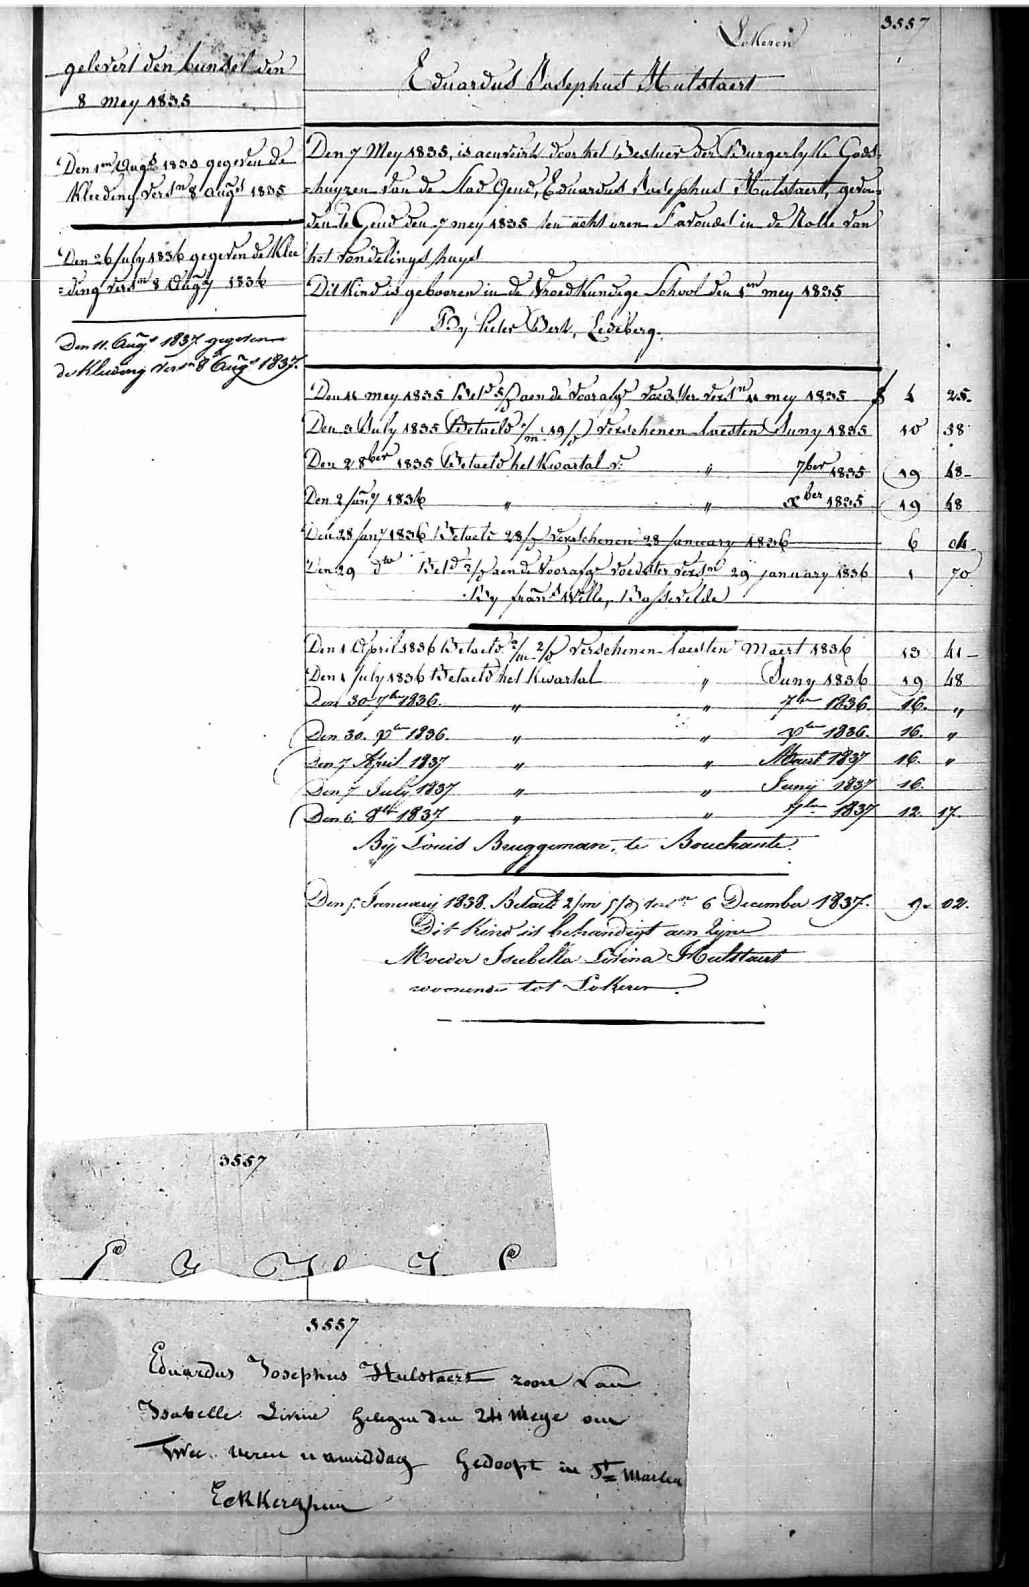 Lokeren
3557
gelevert den bunsel den
8 mey 1835
Den 1en Augt 1835 gegeven de
kleeding versn 8 Augt 1835
Den 26 July 1836 gegeven de klee
=ding versn 8 Augt 1836
Den 11. Augt 1837 gegeven
de kleeding versn 8 Augt 1837.
Eduardus Josephus Hulstaert
Den 7 Mey 1835, is aenveird door het Bestuer der Burgerlyke Gods=
=huyzen van de stad Gend, Eduardus Josephus Hulstaert, gevon=
den te Gend den 7 mey 1835 ten acht uren s'avonds in de Rolle van
het vondelings huys
Dit kind is gebooren in de Vroedkundige School den 1en mey 1835
By Pieter Bert, Ledeberg.
Den 11 mey 1835 Beld 5/d aen de voorafge voedster versn 11 mey 1835 f 4 25-
Den 3 July 1835 Betaeld 1/m 19/d verschenen laesten Juny 1835 10 38
Den 2 8ber 1835 Betaeld het kwartal v: " 7ber 1835 19 48-
Den 2 Jany 1836 " " xber 1835 19 48
Den 28 Jany 1836 Betaeld 28/d verschenen 28 January 1836 6 04
Den 29 dto Beld 2/d aen de voorafge voedster versn 29 january 1836 1 70
By frans Wille, Bassevelde
Den 1 April 1836 Betaeld 2/m 2/d verschenen laesten Maert 1836 13 41-
Den 1 July 1836 Betaeld het kwartal " Juny 1836 19 48
Den 30 7ber 1836. " " 7ber 1836. 16. "
Den 30. xber 1836. " " xber 1836. 16. "
Den 7 April 1837 " " Maert 1837 16. "
Den 7 July 1837 " " Junij 1837 16.
Den 6. 8ber 1837 " " 7ber 1837 12. 17.
Bij Louis Bruggeman, te Bouchaute.
Den 5 January 1838. Betaeld 2/m 5/d versn 6 December 1837. 9. 02.
Dit kind is behandigt aen zyne
Moeder Isabella Livina Hulstaert
woonende tot Lokeren.
3557
3557
Eduardus Josephus Hulstaert zoone van
Isabelle Livine gelegen den 24 Meye om
twee ueren namiddag gedoopt in St Marten
Eckkerghem